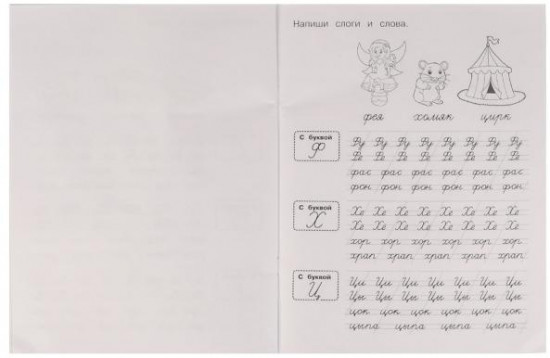 Напиши слоги и слова.
фея хомяк цирк
С буквой
Ф
Фу Фу Фу Фу Фу Фу Фу Фу
Фе Фе Фе Фе Фе Фе Фе Фе
фас фас фас фас фас фас
фон фон фон фон фон фон
С буквой
Х
Хе Хе Хе Хе Хе Хе Хе Хе
Хе Хе Хе Хе Хе Хе Хе Хе
хор хор хор хор хор хор
храп храп храп храп храп
С буквой
Ц
Ци Ци Ци Ци Ци Ци Ци Ци
Цы Цы Цы Цы Цы Цы Цы Цы
цок цок цок цок цок цок
цыпа цыпа цыпа цыпа цыпа